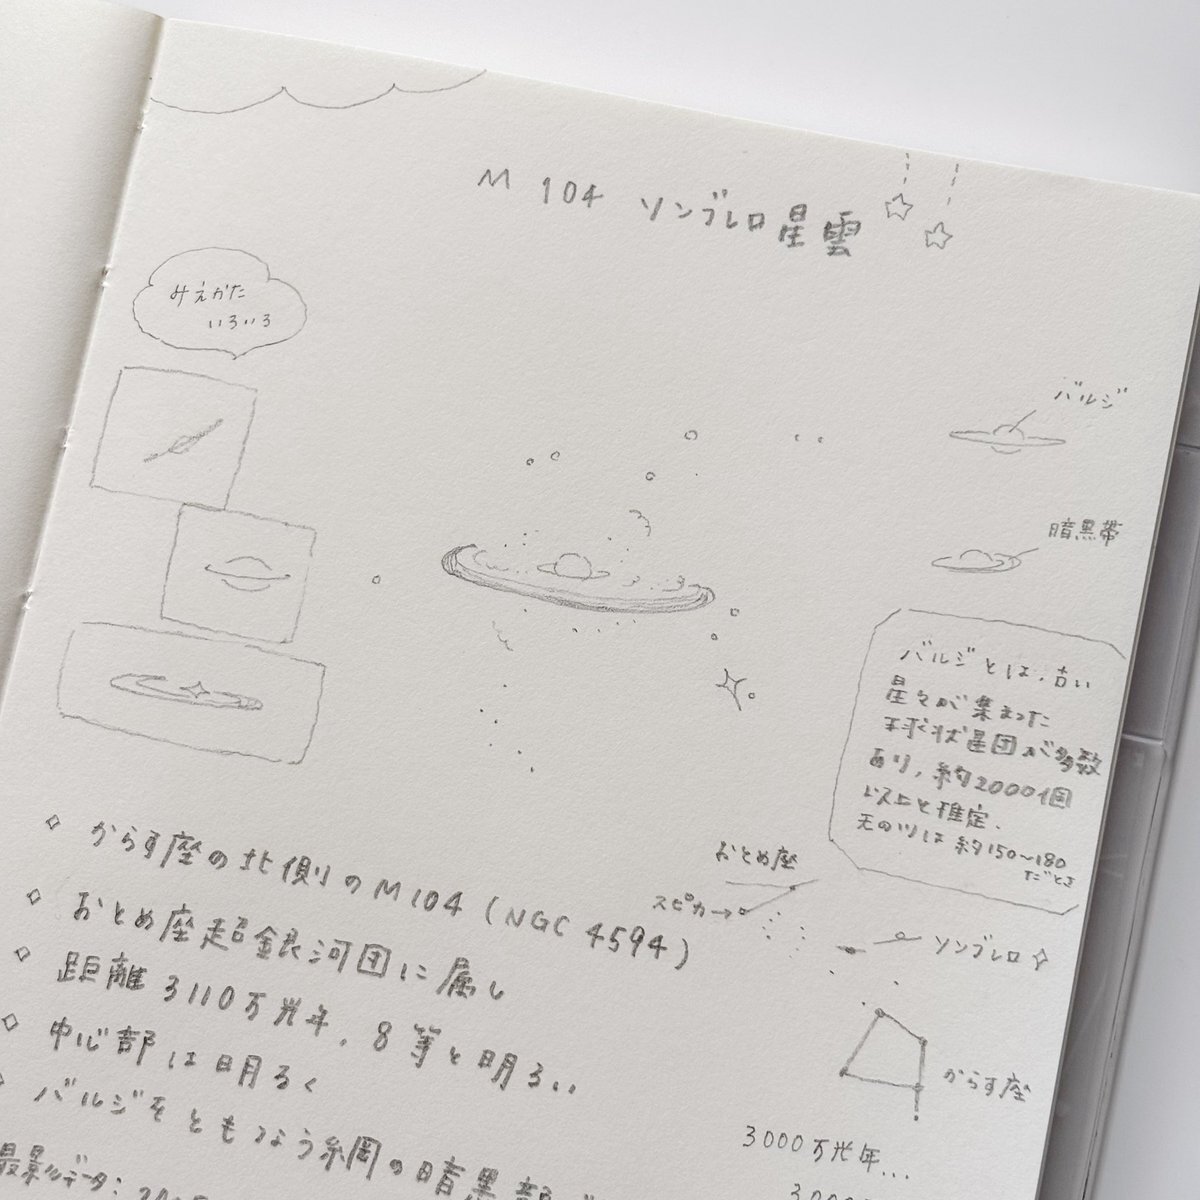 M 104 ソンブレロ星雲
みえかた
いろいろ
バルジ
暗黒帯
バルジとは、古い
星々が集まった
球状星団が多数
あり、約2000個
以上と推定.
天のツは約150〜180
だとさ
おとめ座
スピカ→
ソンブレロ
からす座
3000万光年...
からす座の北側のM104 (NGC 4594)
おとめ座超銀河団に属し
距離 3110万光年、8等と明るい
中心部は明るく
バルジをともなう綱の暗黒部
最影データ: